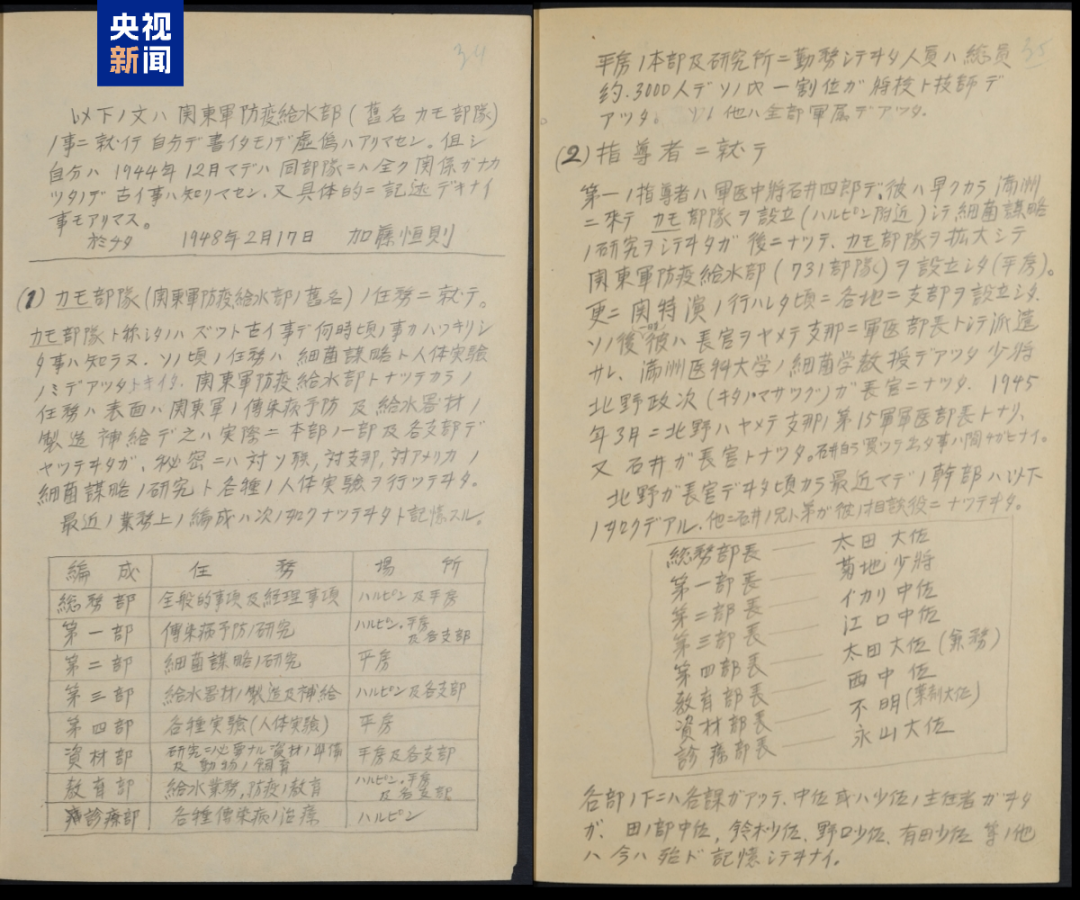 央视
新闻
34
以下ノ文ハ 関東軍防疫給水部(舊名 カモ部隊)
ノ事ニ就イテ 自分デ書イタモノデ虚偽ハアリマセン。但シ
自分ハ 1944年12月マデハ 同部隊ニハ全ク関係ガナカ
ツタノデ 古イ事ハ知リマセン. 又具体的ニ記述デキナイ
事モアリマス。
於チタ 1948年2月17日 加藤恒則
(1) カモ部隊(関東軍防疫給水部ノ舊名)ノ任務ニ就テ。
カモ部隊ト称シタノハ ズツト古イ事デ何時頃ノ事カハツキリシ
タ事ハ知ラヌ. ソノ頃ノ任務ハ 細菌謀略ト人体実験
ノミデアツタトキイタ. 関東軍防疫給水部トナツテカラノ
任務ハ 表面ハ関東軍ノ傳染病予防 及 給水器材ノ
製造 補給デ之ハ実際ニ本部ノ一部及各支部デ
ヤツテヰタガ、秘密ニハ対ソ聯, 対支那, 対アメリカノ
細菌謀略ノ研究ト各種ノ人体実験ヲ行ツテヰタ。
最近ノ業務上ノ編成ハ次ノ如クナツテヰタト記憶スル。
編成 任務 場所
総務部 全般的事項及経理事項 ハルピン及平房
第一部 傳染病予防ノ研究 ハルピン. 平房及各支部
第二部 細菌謀略ノ研究 平房
第三部 給水器材ノ製造及補給 ハルピン及各支部
第四部 各種実験(人体実験) 平房
資材部 研究ニ必要ナル資材ノ準備及動物ノ飼育 平房及各支部
教育部 給水業務, 防疫ノ教育 ハルピン. 平房及各支部
診療部 各種傳染病ノ治療 ハルピン
35
平房ノ本部及研究所ニ勤務シテヰタ人員ハ総員
約.3000人デソノ内一割位ガ将校ト技師デ
アツタ。 ソノ他ハ全部軍属デアツタ.
(2) 指導者ニ就テ
第一ノ指導者ハ軍医中將石井四郎デ、彼ハ早クカラ満洲
ニ來テ カモ部隊ヲ設立(ハルピン附近)シテ細菌謀略
ノ研究ヲシテヰタガ 後ニナツテ、カモ部隊ヲ拡大シテ
関東軍防疫給水部(731部隊)ヲ設立シタ(平房)。
更ニ関特演ノ行ハレタ頃ニ各地ニ支部ヲ設立シタ.
ソノ後彼ハ長官ヲヤメテ支那ニ軍医部長トシテ派遣
サレ、満洲医科大学ノ細菌学教授デアツタ少將
北野政次(キタノマサツグ)ガ長官ニナツタ. 1945
年3月ニ北野ハヤメテ支那ノ第15軍軍医部長トナリ、
又 石井ガ長官トナツタ。石井自ラ買ツテ出タ事ハ間チガヒナイ。
北野ガ長官デヰタ頃カラ最近マデノ幹部ハ以下
ノ如クデアル. 他ニ石井ノ兄ト弟ガ彼ノ相談役ニナツテヰタ。
総務部長 — 太田大佐
第一部長 — 菊地少將
第二部長 — イカリ中佐
第三部長 — 江口中佐
第四部長 — 太田大佐(兼務)
教育部長 — 西中佐
資材部長 — 不明(薬剤大佐)
診療部長 — 永山大佐
各部ノ下ニハ各課ガアツテ、中佐或ハ少佐ノ主任者ガヰタ
ガ、田ノ部中佐, 鈴木少佐、野口少佐、有田少佐 等ノ他
ハ今ハ殆ド記憶シテヰナイ。